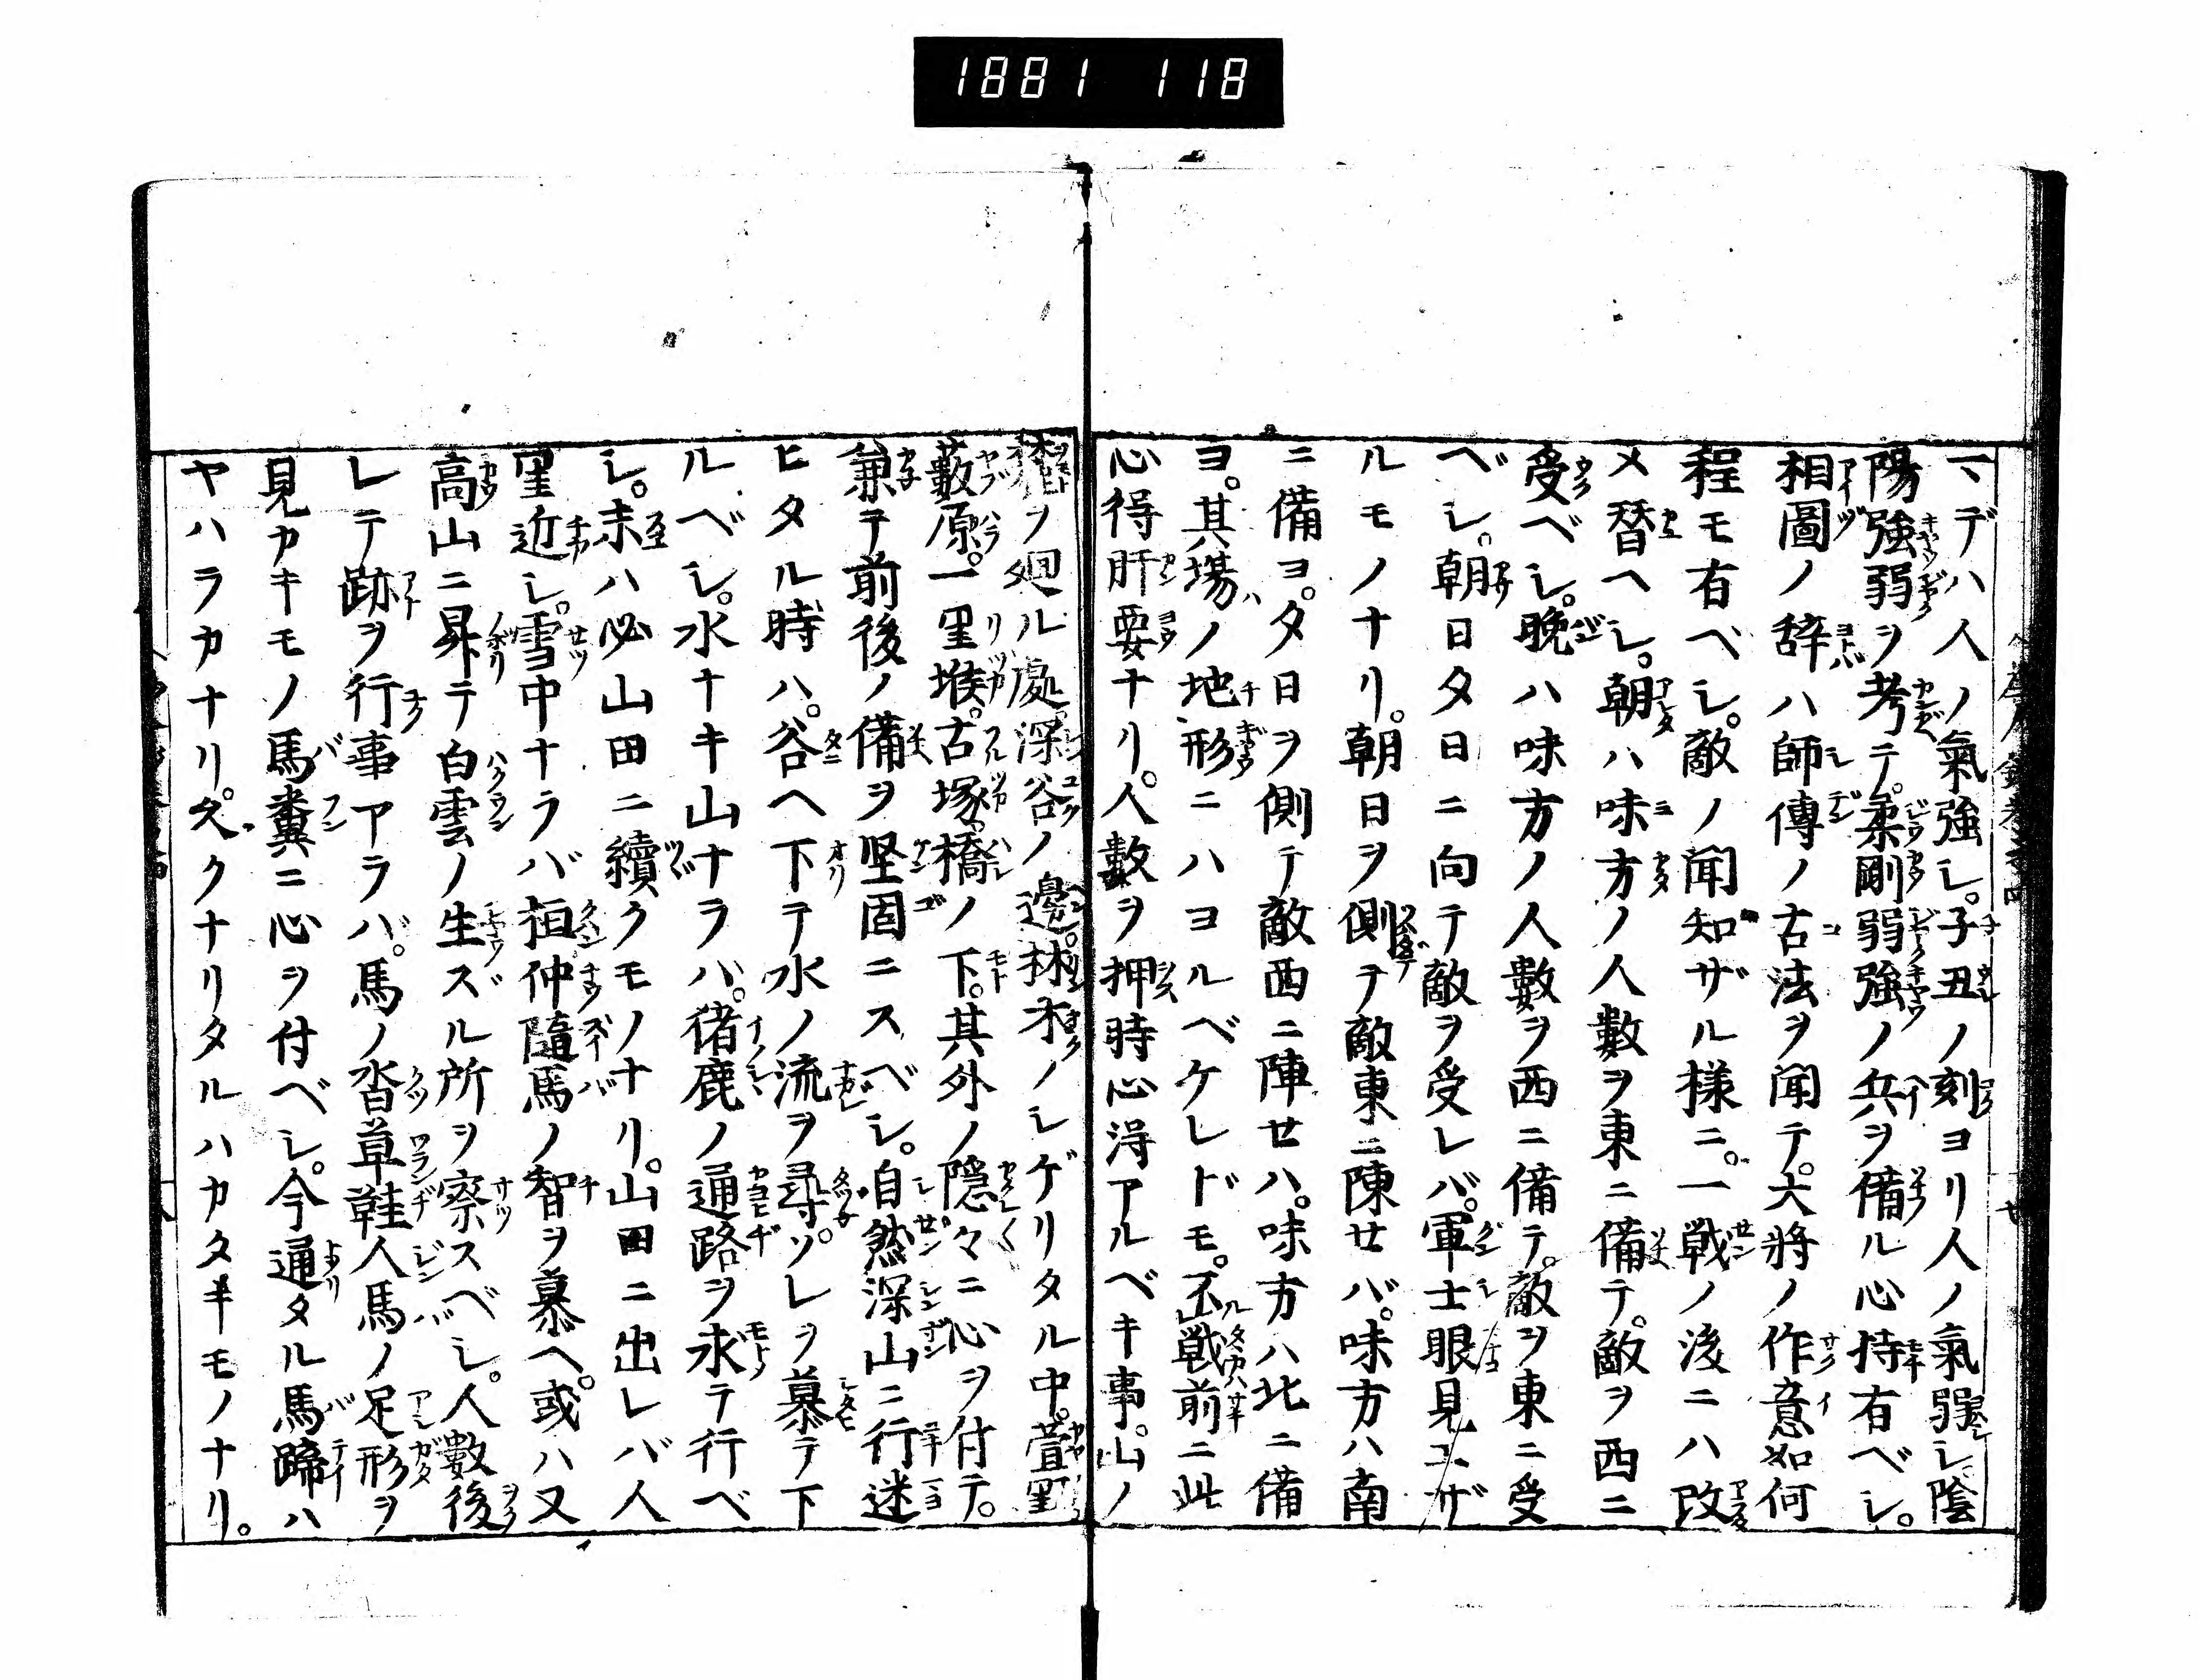 1881 118
マデハ人ノ氣強シ。子丑ノ刻ヨリ人ノ氣弱シ。陰
陽強弱ヲ考テ。柔剛弱強ノ兵ヲ備ル心持有ベシ。
相圖ノ辞ハ師傳ノ古法ヲ聞テ。大將ノ作意如何
程モ有ベシ。敵ノ聞知ザル様ニ。一戦ノ後ニハ改
メ替ヘシ。朝ハ味方ノ人數ヲ東ニ備テ。敵ヲ西ニ
受ベシ。晩ハ味方ノ人數ヲ西ニ備テ。敵ヲ東ニ受
ベシ。朝日夕日ニ向テ敵ヲ受レバ。軍士眼見ユザ
ルモノナリ。朝日ヲ側テ敵東ニ陳せバ。味方ハ南
ニ備ヨ。夕日ヲ側テ敵西ニ陣せハ。味方ハ北ニ備
ヨ。其場ノ地形ニハヨルベケレドモ。不戦前ニ此
心得肝要ナリ。人數ヲ押時心得アルベキ事。山ノ
ヲ廻ル處。深谷ノ邊。林木ノシゲリタル中。萱野
藪原。一里堠。古塚。橋ノ下。其外ノ隠々ニ心ヲ付テ。
兼テ前後ノ備ヲ堅固ニスベシ。自然深山ニ行迷
ヒタル時ハ。谷ヘ下テ水ノ流ヲ尋ソ。レヲ慕テ下
ルベシ。水ナキ山ナラハ。猪鹿ノ通路ヲ求テ行ベ
シ。末ハ必山田ニ續クモノナリ。山田ニ出レバ人
里近シ。雪中ナラバ桓仲隨馬ノ智ヲ慕ヘ。或ハ又
高山ニ昇テ白雲ノ生スル所ヲ察スベシ。人數後
レテ跡ヲ行事アラバ。馬ノ沓草鞋人馬ノ足形ヲ
見カキモノ馬糞ニ心ヲ付ベシ。今通タル馬蹄ハ
ヤハラカナリ。久クナリタルハカタキモノナリ。